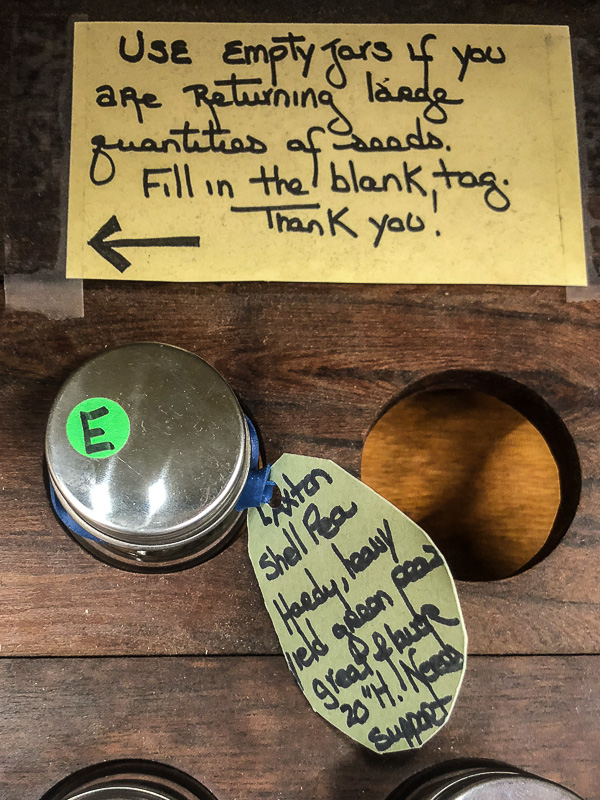 Use Empty Jars if you
are Returning large
quantities of seeds.
Fill in the blank tag.
Thank you!
E
Laxton
Shell Pea
Hardy, heavy
yield green peas
great flavor
20"H. Needs
support